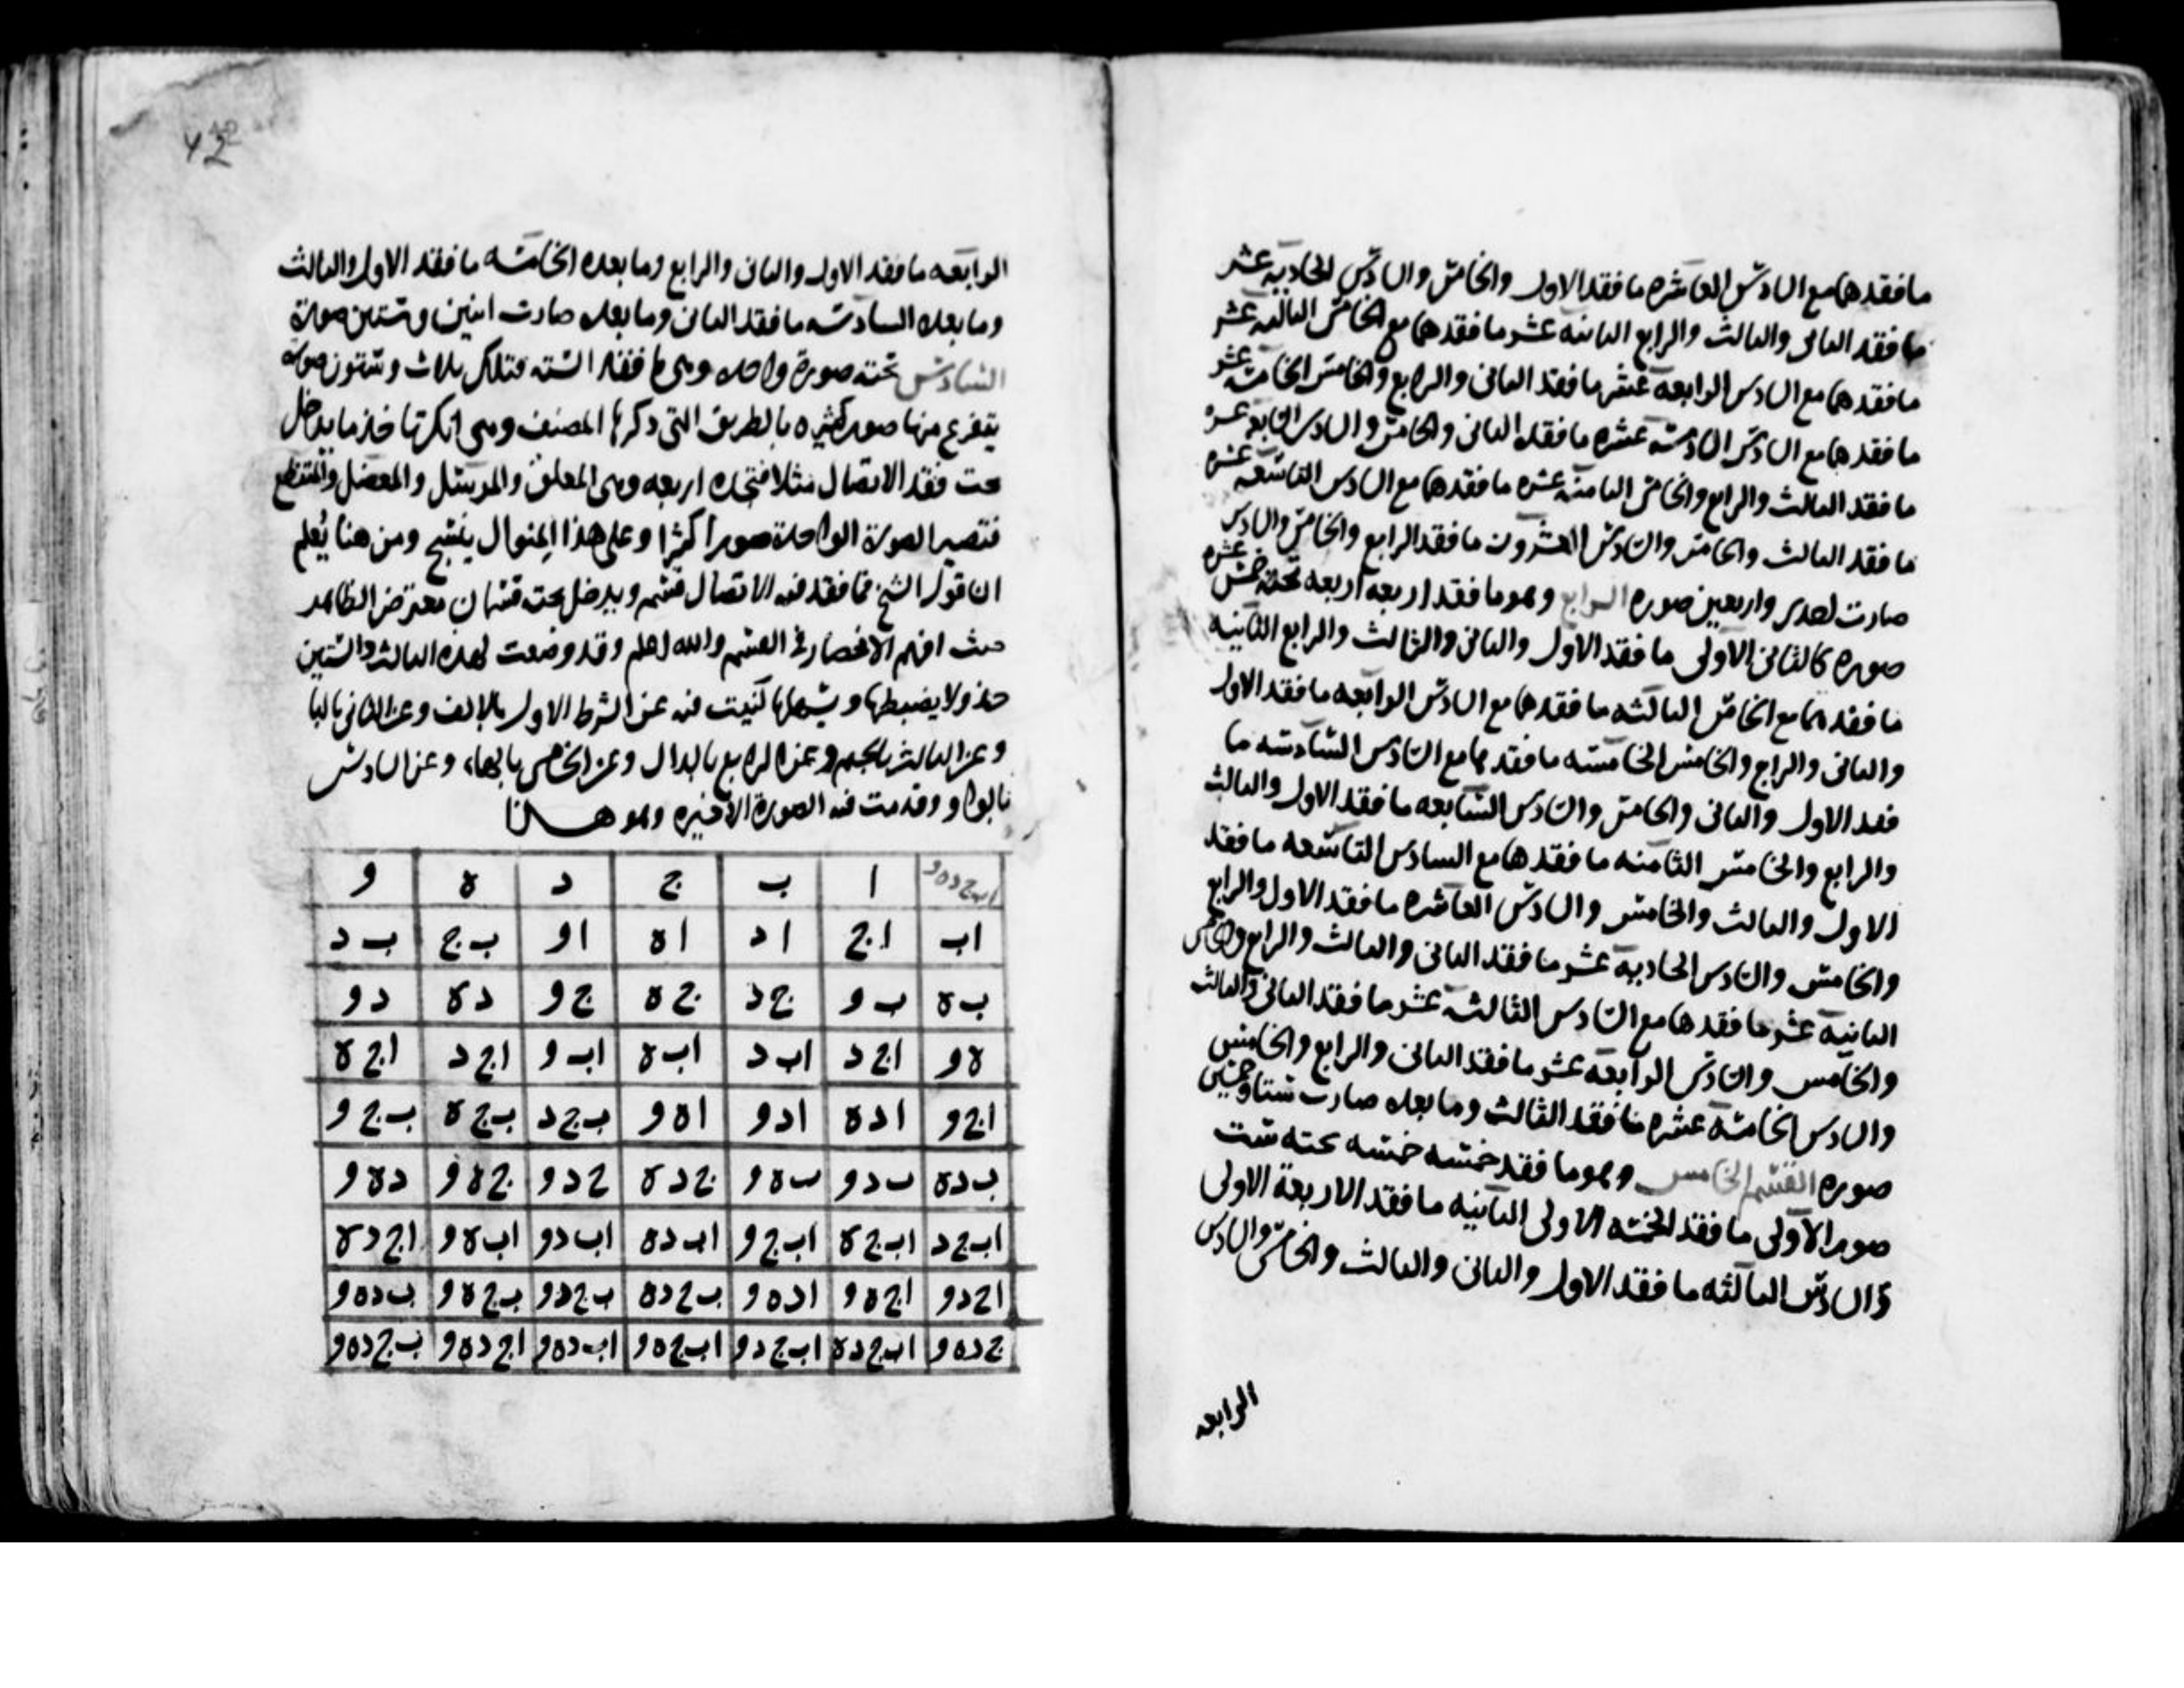 ما فقدهما مع السادس العاشره ما فقد الاول والخامس والسادس الحاديه عشر
ما فقد الثانى والثالث والرابع الثانيه عشر ما فقدهما مع الخامس الثالثه عشر
ما فقدهما مع السادس الرابعه عشر ما فقد الثانى والرابع والخامس الخامسه عشر
ما فقدهما مع السادس السادسه عشره ما فقد الثانى والخامس والسادس السابعه عشره
ما فقد الثالث والرابع والخامس الثامنه عشره ما فقدهما مع السادس التاسعه عشره
ما فقد الثالث والخامس والسادس العشرون ما فقد الرابع والخامس والسادس
صارت احدى واربعين صوره الرابع وهو ما فقد اربعه اربعه تحته خمس عشره
صوره كالثانى الاولى ما فقد الاول والثانى والثالث والرابع الثانيه
ما فقدهما مع الخامس الثالثه ما فقدهما مع السادس الرابعه ما فقد الاول
والثانى والرابع والخامس الخامسه ما فقدهما مع السادس السادسه ما
فقد الاول والثانى والخامس والسادس السابعه ما فقد الاول والثالث
والرابع والخامس الثامنه ما فقدها مع السادس التاسعه ما فقد
الاول والثالث والخامس والسادس العاشره ما فقد الاول والرابع
والخامس والسادس الحاديه عشر ما فقد الثانى والثالث والرابع والخامس
الثانيه عشر ما فقدها مع السادس الثالثه عشر ما فقد الثانى والثالث
والخامس والسادس الرابعه عشر ما فقد الثانى والرابع والخامس
والسادس الخامسه عشره ما فقد الثالث وما بعده صارت ستا وخمسين
صوره القسم الخامس وهو ما فقد خمسه خمسه تحته ست
صور الاولى ما فقد الخمسه الاولى الثانيه ما فقد الاربعة الاولى
والسادس الثالثه ما فقد الاول والثانى والثالث والخامس والسادس
الرابعه
الرابعه ما فقد الاول والثانى والرابع وما بعده الخامسه ما فقد الاول والثالث
وما بعده السادسه ما فقد الثانى وما بعده صارت اثنين وستين صورة
السادس تحته صورة واحده وهى ما فقد السته فتلك ثلاث وستون صوره
يتفرع منها صور كثيره بالطريق التى ذكرها المصنف وهى انك تاخذ ما يدخل
تحت فقد الاتصال مثلا فتجده اربعه وهى المعلق والمرسل والمعضل والمنقطع
فتصير الصورة الواحدة صورا كثيرا وعلى هذا المنوال ينسج ومن هنا يُعلم
ان قول الشيخ فما فقد فيه الاتصال قسم ويدخل تحته قسمان معترض الظاهر
حيث افهم الانحصار فى القسم والله اعلم وقد وضعت لهذه الثالث والستين
جدولا يضبطها ويسهلها كنيت فيه عن الشرط الاول بالالف وعن الثانى بالبا
وعن الثالث بالجيم وعن الرابع بالدال وعن الخامس بالهاء وعن السادس
بالواو وقدمت فيه الصورة الاخيره وهو هذا
اب ج د ه و | ا | ب | ج | د | ه | و
اب | ا ج | ا د | ا ه | ا و | ب ج | ب د
ب ه | ب و | ج د | ج ه | ج و | د ه | د و
ه و | ا ج د | اب د | اب ه | اب و | ا ج د | ا ج ه
ا ج و | ا د ه | ا د و | ا ه و | ب ج د | ب ج ه | ب ج و
ب د ه | ب د و | ب ه و | ج د ه | ج د و | ج ه و | د ه و
اب ج د | اب ج ه | اب ج و | اب د ه | اب د و | اب ه و | ا ج د ه
ا ج د و | ا ج ه و | ا د ه و | ب ج د ه | ب ج د و | ب ج ه و | ب د ه و
ج د ه و | اب ج د ه | اب ج د و | اب ج ه و | اب د ه و | ا ج د ه و | ب ج د ه و